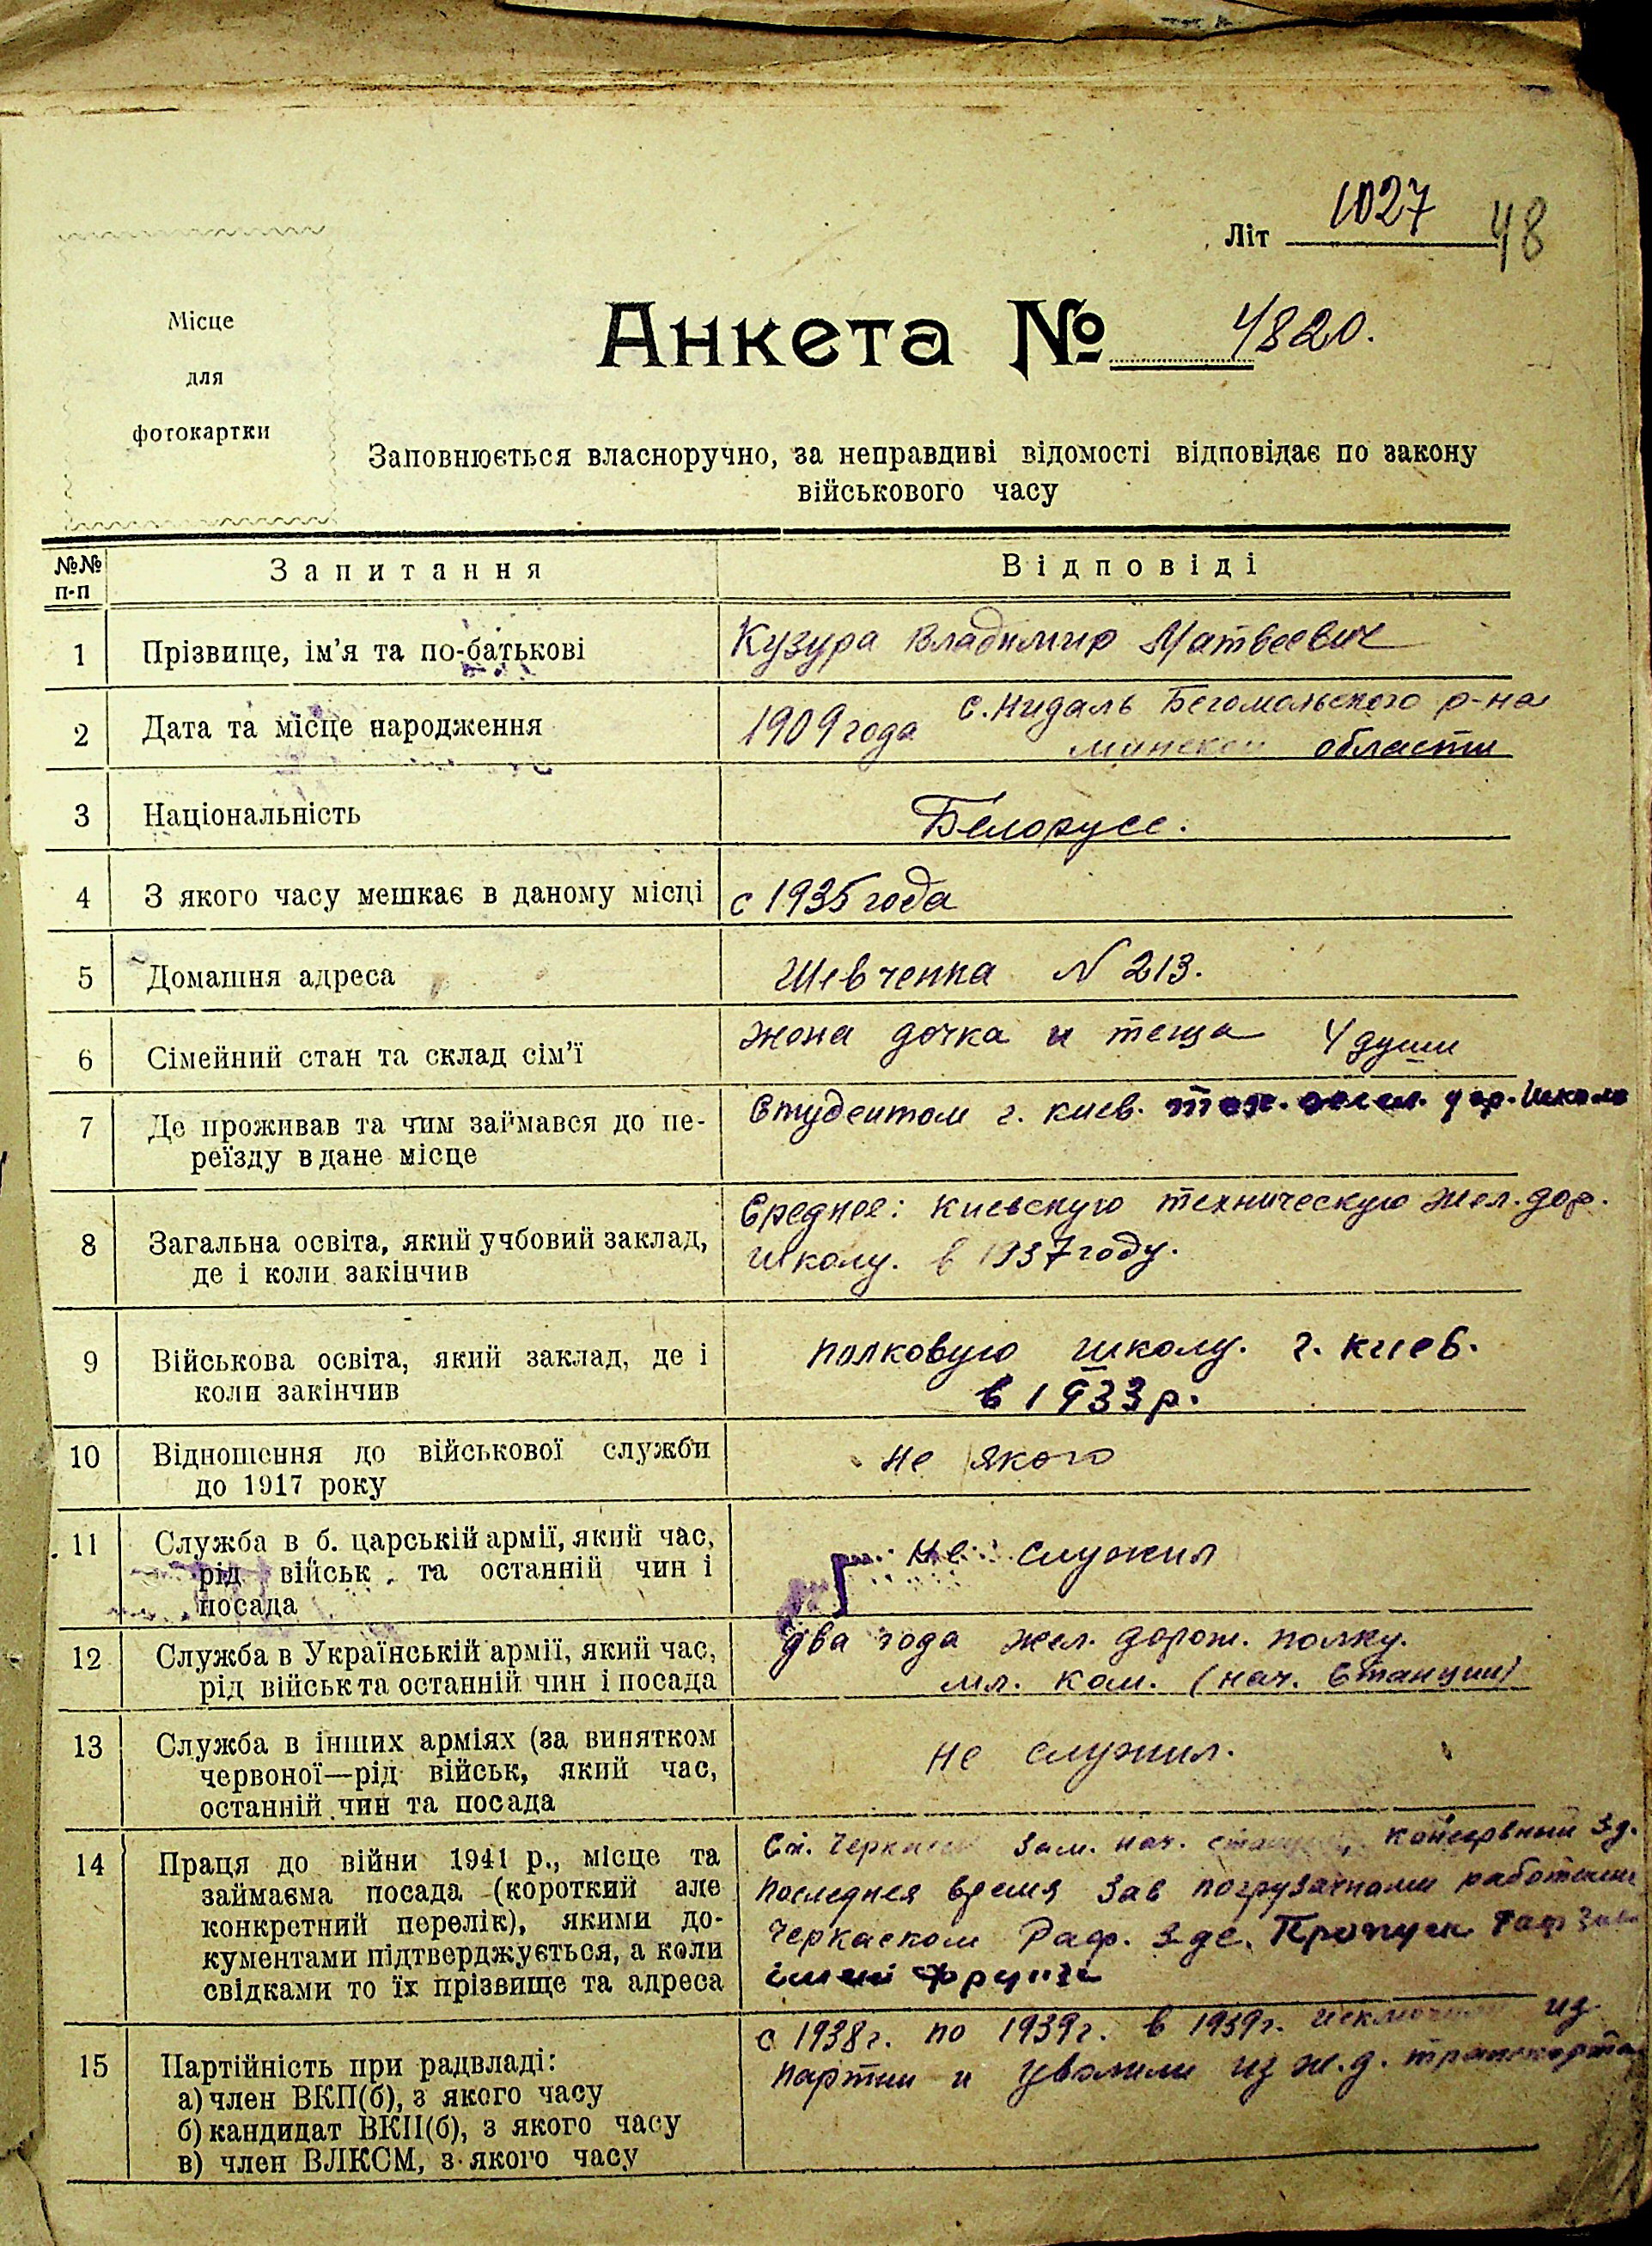 Літ 1027 48
Місце
для
фотокартки
Анкета № 4820.
Заповнюється власноручно, за неправдиві відомості відповідає по закону
військового часу
№№
п-п
Запитання
Відповіді
1 Прізвище, ім'я та по-батькові
Кузура Владимир Матвеевич
2 Дата та місце народження
1909 года с. Нидаль Бегомольского р-на
минской области
3 Національність
Белорусс.
4 З якого часу мешкає в даному місці
с 1935 года
5 Домашня адреса
Шевченка N 213.
6 Сімейний стан та склад сім'ї
жена дочка и теща 4 души
7 Де проживав та чим займався до пе-
реїзду в дане місце
Студентом г. Киев. дор. Школа
8 Загальна освіта, який учбовий заклад,
де і коли закінчив
Среднее: Киевскую техническую жел. дор.
школу. в 1937 году.
9 Військова освіта, який заклад, де і
коли закінчив
полковую школу. г. Киев.
в 1933 р.
10 Відношення до військової служби
до 1917 року
не якого
11 Служба в б. царській армії, який час,
рід військ та останній чин і
посада
не служил
12 Служба в Українській армії, який час,
рід військ та останній чин і посада
два года жел. дорож. полку.
мл. ком. (нач. Станции)
13 Служба в інших арміях (за винятком
червоної—рід військ, який час,
останній чин та посада
не служил.
14 Праця до війни 1941 р., місце та
займаєма посада (короткий але
конкретний перелік), якими до-
кументами підтверджується, а коли
свідками то їх прізвище та адреса
Ст. Черкассы Зам. нач. станции, консервный Зд.
последнея время Зав погрузачнами работами
Черкаском Раф. Зде. Пропуск Раф
імені Фрунзе
15 Партійність при радвладі:
а) член ВКП(б), з якого часу
б) кандидат ВКП(б), з якого часу
в) член ВЛКСМ, з якого часу
с 1938 г. по 1939 г. в 1939 г. исключили из
партии и уволили из ж. д. транспорта